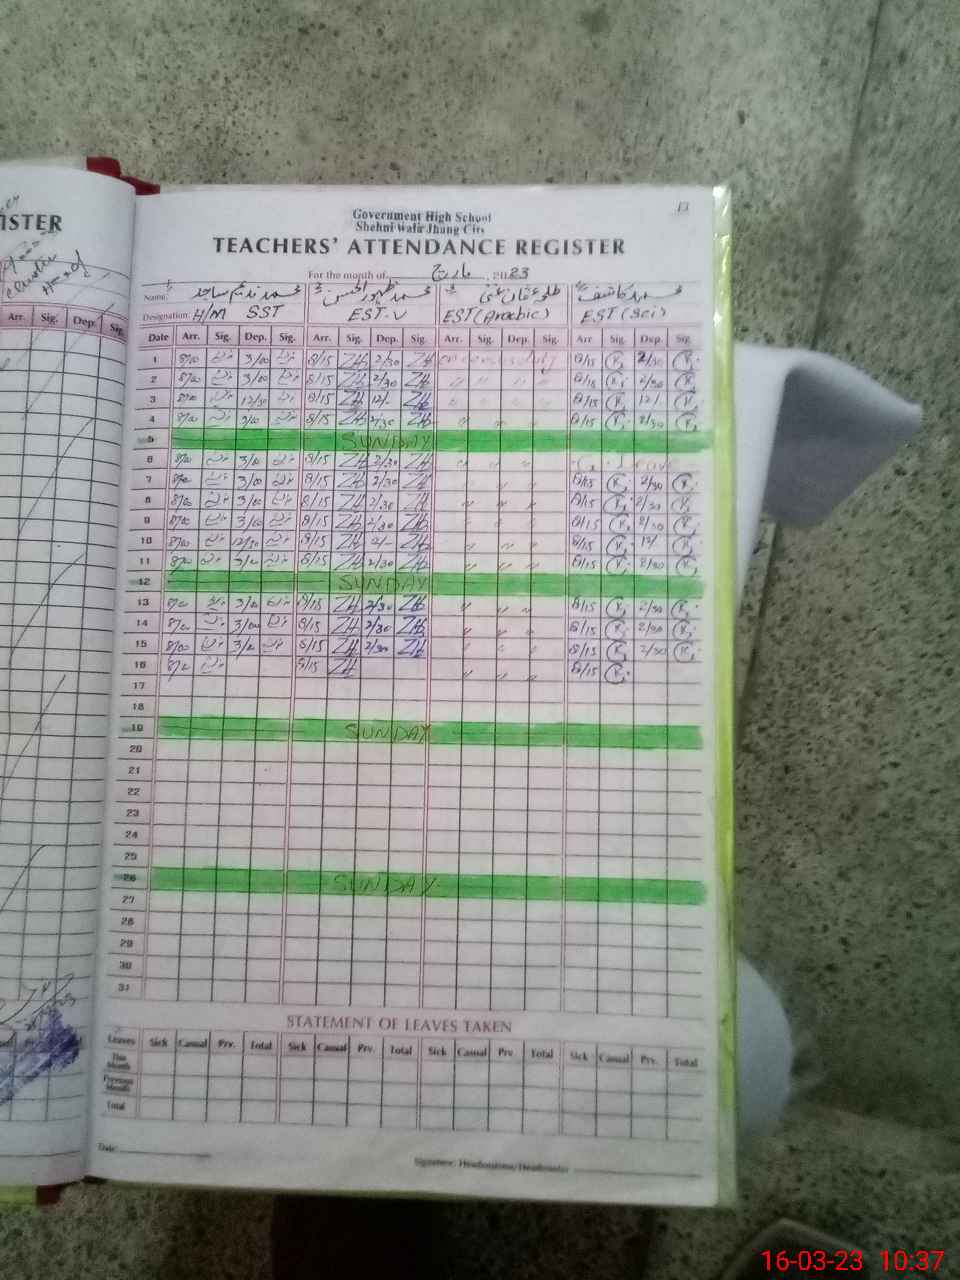 ISTER
Arr. Sig. Dep. Sig.
13
Government High School
Shehni Wala Jhang City
TEACHERS' ATTENDANCE REGISTER
For the month of مارچ , 2023
Name: محمد ندیم ساجد محمد ظہور الحسن محمد کاشف
Designation: H/M SST EST-V EST (Arabic) EST (Sci)
Date Arr. Sig. Dep. Sig. Arr. Sig. Dep. Sig. Arr. Sig. Dep. Sig. Arr. Sig. Dep. Sig.
1 8/00 3/00 8/15 ZH 2/30 ZH on census duty 8/15 2/30
2 8/00 3/00 8/15 ZH 2/30 ZH " " " " 8/15 2/30
3 8/00 12/30 8/15 ZH 12/- ZH " " " " 8/15 12/-
4 8/00 3/00 8/15 ZH 2/30 ZH " " " 8/15 2/30
5 SUNDAY
6 8/00 3/00 8/15 ZH 2/30 ZH " " " C. Leave
7 8/00 3/00 8/15 ZH 2/30 ZH " " " 8/15 2/30
8 8/00 3/00 8/15 ZH 2/30 ZH " " " 8/15 2/30
9 8/00 3/00 8/15 ZH 2/30 ZH " " " 8/15 2/30
10 8/00 12/30 8/15 ZH 12/- ZH " " " 8/15 12/
11 8/00 3/00 8/15 ZH 2/30 ZH " " " 8/15 2/30
12 SUNDAY
13 8/00 3/00 8/15 ZH 2/30 ZH " " " 8/15 2/30
14 8/00 3/00 8/15 ZH 2/30 ZH " " " 8/15 2/30
15 8/00 3/00 8/15 ZH 2/30 ZH " " " 8/15 2/30
16 8/00 8/15 ZH " " " 8/15
17
18
19 SUNDAY
20
21
22
23
24
25
26 SUNDAY
27
28
29
30
31
STATEMENT OF LEAVES TAKEN
Leaves Sick Casual Prv. Total Sick Casual Prv. Total Sick Casual Prv. Total Sick Casual Prv. Total
This Month
Previous Month
Total
Date
Signature: Headmistress/Headmaster
16-03-23 10:37